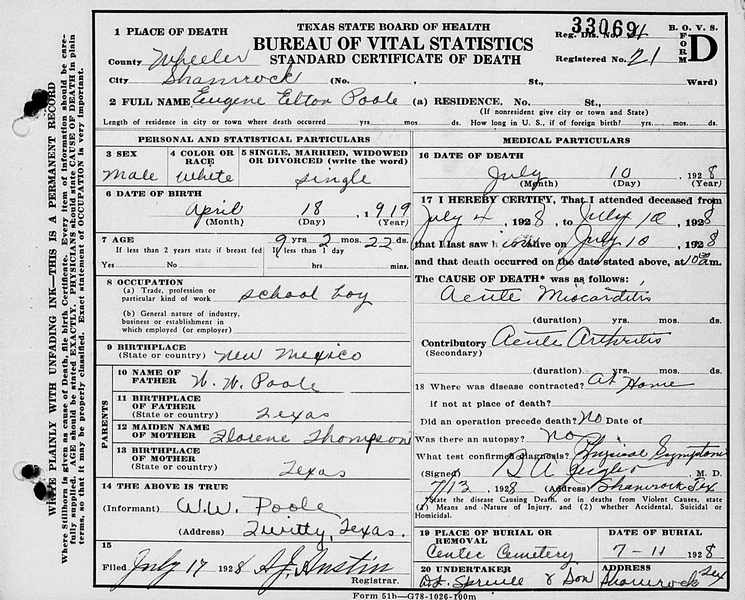 TEXAS STATE BOARD OF HEALTH
BUREAU OF VITAL STATISTICS
STANDARD CERTIFICATE OF DEATH
33069
Reg. Dis. No. 4
Registered No. 21
B. O. V. S.
FORM D
WRITE PLAINLY WITH UNFADING INK—THIS IS A PERMANENT RECORD
Where Stillborn is given as cause of Death, file birth Certificate. Every item of information should be carefully supplied. AGE should be stated EXACTLY. PHYSICIANS should state CAUSE OF DEATH in plain terms, so that it may be properly classified. Exact statement of OCCUPATION is very important.
1 PLACE OF DEATH
County Wheeler
City Shamrock (No. , St., Ward)
2 FULL NAME Eugene Elton Poole (a) RESIDENCE, No. St.,
(If nonresident give city or town and State)
Length of residence in city or town where death occurred yrs. mos. ds. How long in U. S., if of foreign birth? yrs. mos. ds.
PERSONAL AND STATISTICAL PARTICULARS
3 SEX
Male
4 COLOR OR RACE
White
5 SINGLE, MARRIED, WIDOWED OR DIVORCED (write the word)
Single
6 DATE OF BIRTH
April 18, 1919
(Month) (Day) (Year)
7 AGE 9 yrs 2 mos. 22 ds.
If less than 2 years state if breast fed If less than 1 day
Yes No hrs. min.
8 OCCUPATION
(a) Trade, profession or particular kind of work school boy
(b) General nature of industry, business or establishment in which employed (or employer)
9 BIRTHPLACE
(State or country) New Mexico
PARENTS
10 NAME OF FATHER W. W. Poole
11 BIRTHPLACE OF FATHER
(State or country) Texas
12 MAIDEN NAME OF MOTHER Florene Thompson
13 BIRTHPLACE OF MOTHER
(State or country) Texas
14 THE ABOVE IS TRUE
(Informant) W.W. Poole
(Address) Twitty, Texas.
15
Filed July 17 1928 A.J. Austin
Registrar.
MEDICAL PARTICULARS
16 DATE OF DEATH
July 10 1928
(Month) (Day) (Year)
17 I HEREBY CERTIFY, That I attended deceased from
July 4, 1928, to July 10, 1928
that I last saw him alive on July 10, 1928
and that death occurred on the date stated above, at 10 am.
The CAUSE OF DEATH* was as follows:
Acute Miocarditis
(duration) yrs. mos. ds.
Contributory Acute Arthritis
(Secondary)
(duration) yrs. mos. ds.
18 Where was disease contracted? At Home
if not at place of death?
Did an operation precede death? No Date of
Was there an autopsy? No
What test confirmed diagnosis? Physical Symptoms
(Signed) M. D.
7/13 1928 (Address) Shamrock Tex
*State the disease Causing Death, or in deaths from Violent Causes, state (1) Means and Nature of Injury, and (2) whether Accidental, Suicidal or Homicidal.
19 PLACE OF BURIAL OR REMOVAL
Center Cemetery
DATE OF BURIAL
7-11 1928
20 UNDERTAKER
Spruce & Son
ADDRESS
Shamrock Tex
Form 51b—G78-1026-100m